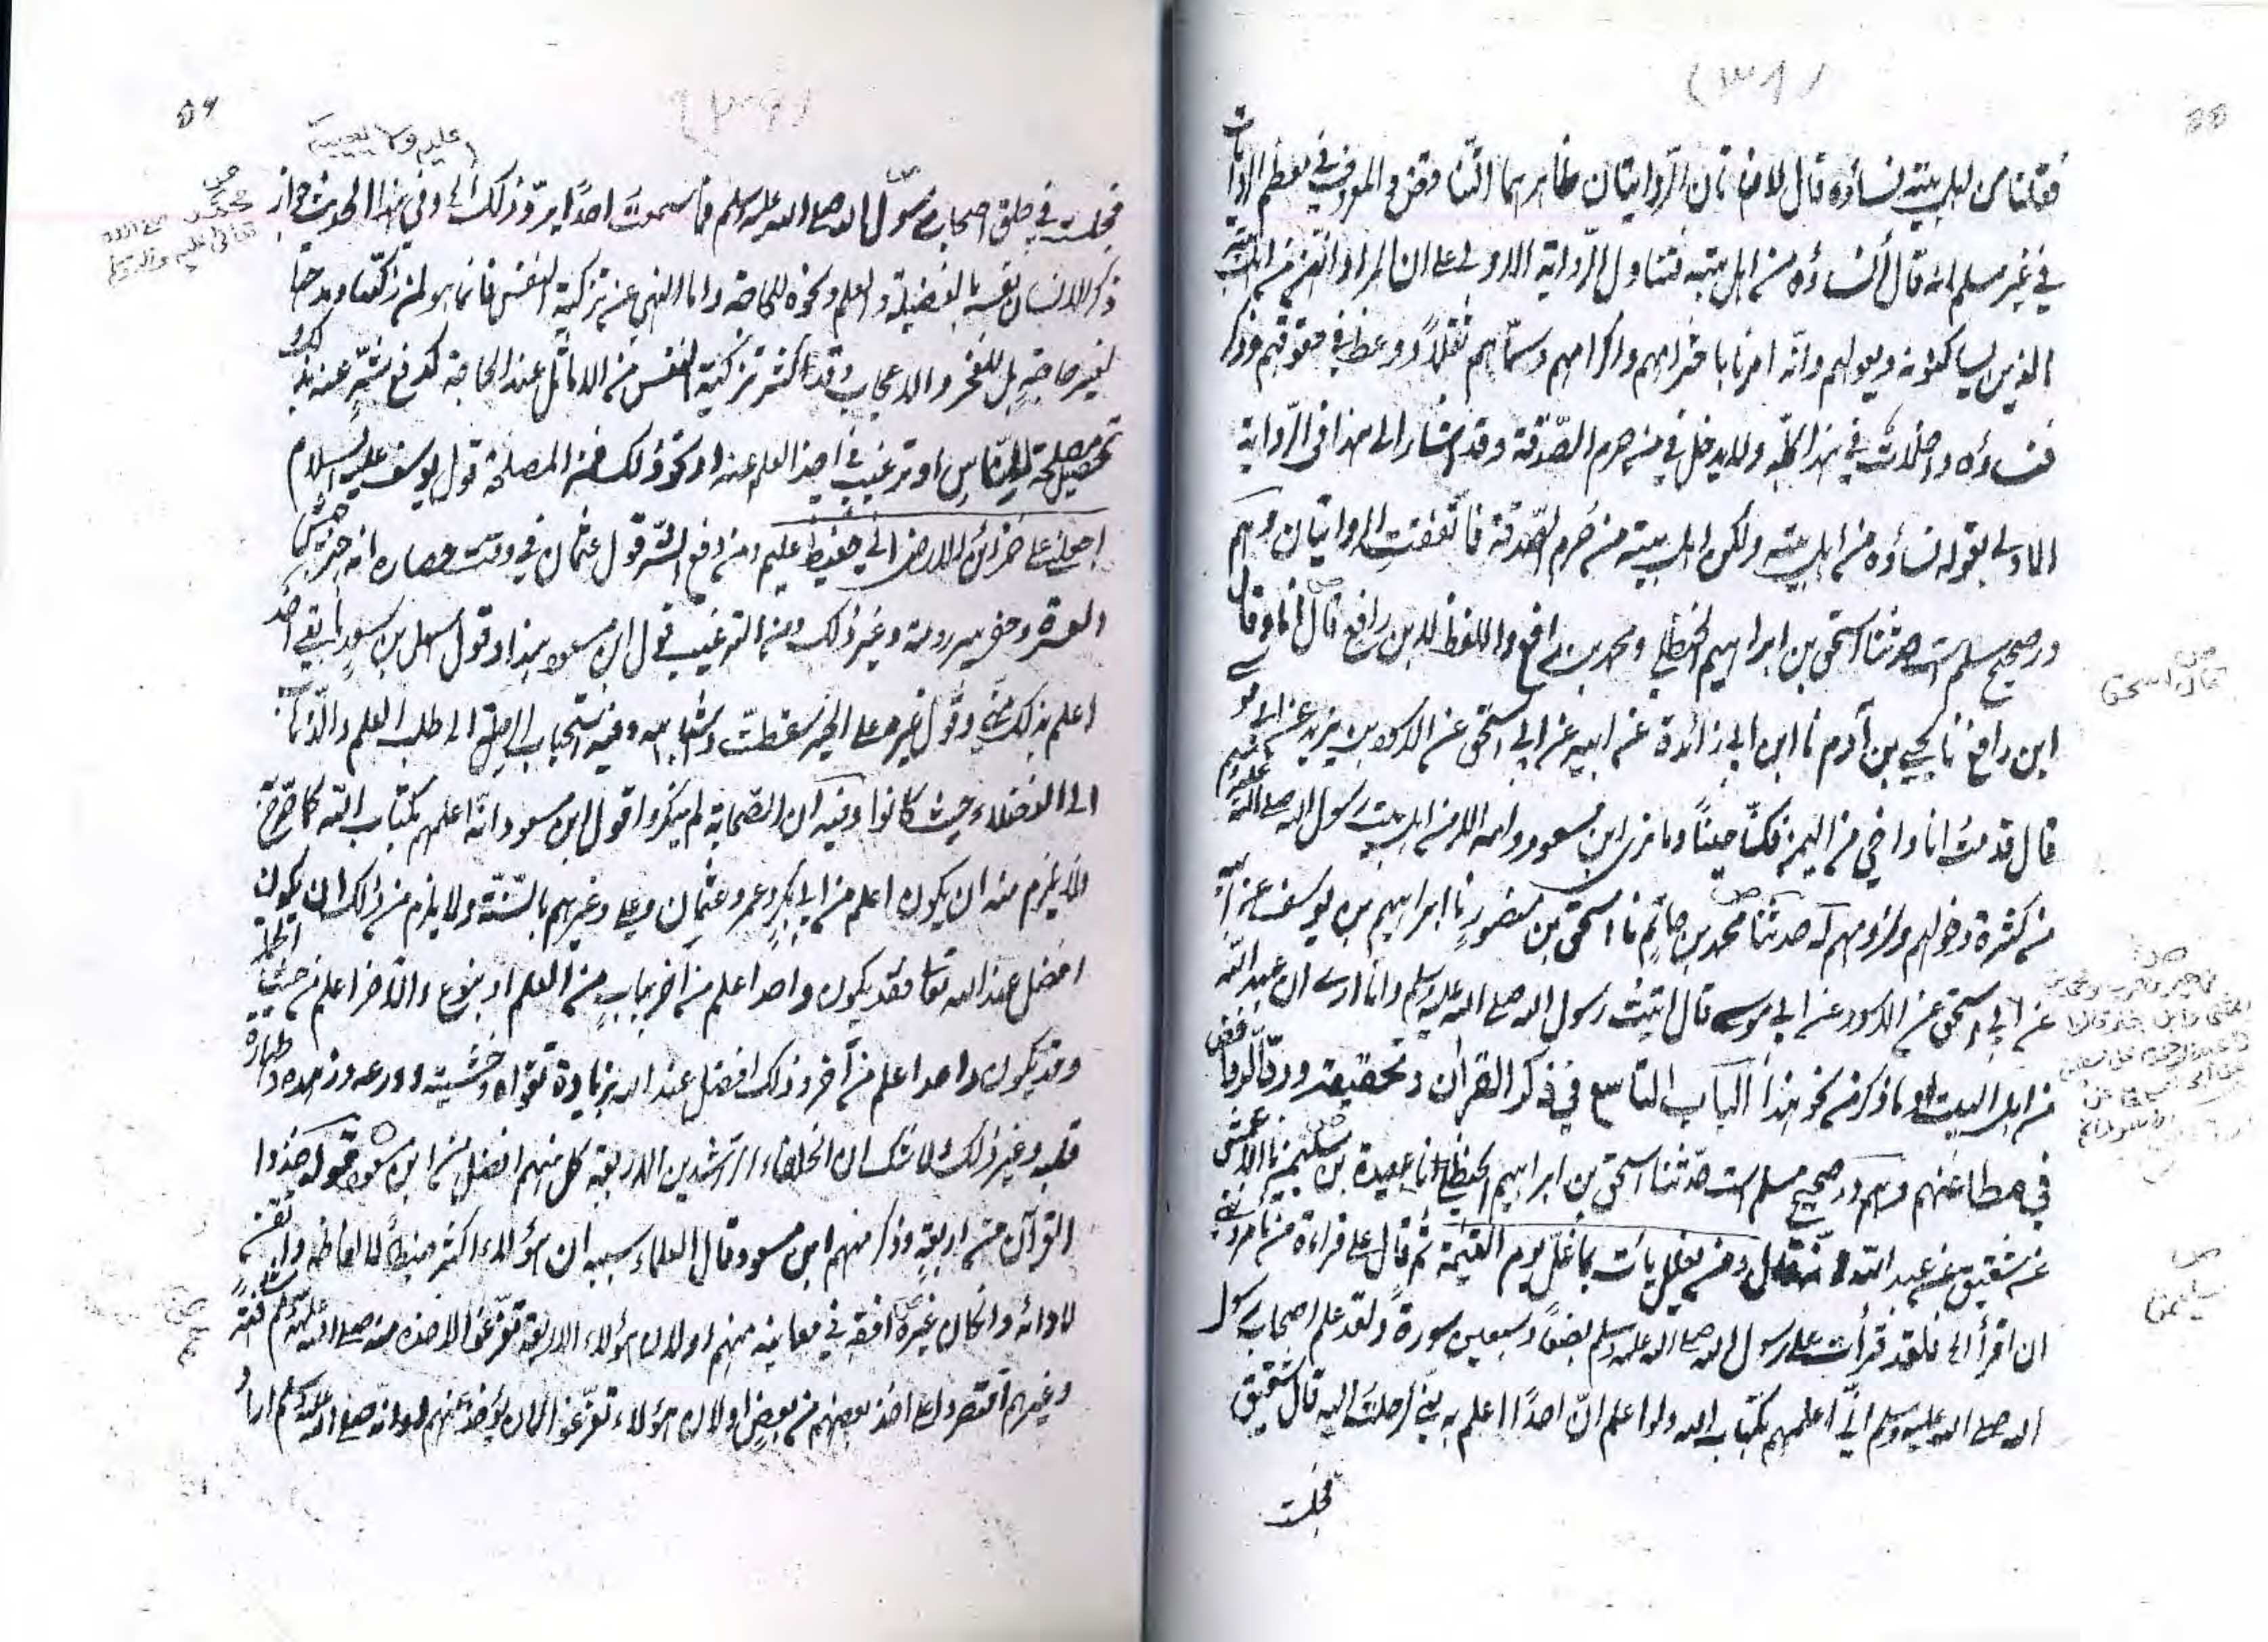 (٣٨)
فقلنا من اهل بيته نساؤه قال لا فهاتان الروايتان ظاهرهما التناقض والمعروف في معظم الروايات
في غير مسلم انه قال نساؤه من اهل بيته فتتاول الرواية الاولى على ان المراد انهن من اهل بيته
الذين يساكنونه ويعولهم وانه امرنا باحترامهم واكرامهم وسماهم ثقلاً ووعظ في حقوقهم وذكر
فنساؤه داخلات في هذا كله ولا يدخل في من حرم الصدقة وقد اشار الى هذا في الرواية
الاولى بقوله نساؤه من اهل بيته ولكن اهل بيته من حرم الصدقة فاتفقت الروايتان وهم
در صحيح مسلم است حدثنا اسحق بن ابراهيم الحنظلي ومحمد بن رافع واللفظ لابن رافع قال انا وقال
ابن رافع نا يحيى بن آدم نا ابن ابي زائدة عن ابيه عن ابي اسحق عن الاسود بن يزيد عن ابي موسى
قال قدمت انا واخي من اليمن فكنا حيناً وما نرى ابن مسعود وامه الا من اهل بيت رسول الله صلى الله عليه وسلم
من كثرة دخولهم ولزومهم له حدثنا محمد بن حاتم نا اسحق بن منصور نا ابراهيم بن يوسف عن ابيه
عن ابي اسحق عن الاسود عن ابي موسى قال اتيت رسول الله صلى الله عليه وسلم وانا ارى ان عبد الله
من اهل البيت او ما ذكر من نحو هذا الباب التاسع في ذكر القرآن وتحقيقه ورد الروافض
في مطاعنهم وهم در صحيح مسلم است حدثنا اسحق بن ابراهيم الحنظلي انا عبدة بن سليمن نا الاعمش
عن شقيق عن عبد الله انه قال ومن يغلل يأت بما غل يوم القيمة ثم قال على قراءة من تامروني
ان اقرأ الخ فلقد قرأت على رسول الله صلى الله عليه وسلم بضعاً وسبعين سورة ولقد علم اصحاب رسول
الله صلى الله عليه وسلم اني اعلمهم بكتاب الله ولو اعلم ان احداً اعلم به مني لرحلت اليه قال شقيق
فجلست
ص
قال اسحق
ص
سليمن
٥٦
عليه ولا يعيبه
فجلست في حلق اصحاب رسول الله صلى الله عليه وسلم فما سمعت احداً يرد ذلك الخ وفي هذا الحديث جواز
ذكر الانسان نفسه بالفضيلة والعلم ونحوه للحاجة واما النهي عن تزكية النفس فانما هو لمن زكاها ومدحها
لغير حاجة بل للفخر والاعجاب وقد اكثر تزكية النفس من الاماثل عند الحاجة كدفع شر عنه بذلك او
تحصيل مصلحة للناس او ترغيب في اخذ العلم عنه او نحو ذلك فمن المصلحة قول يوسف عليه السلام
اجعلني على خزائن الارض اني حفيظ عليم ومن دفع الشر قول عثمان في وقت حصاره انه جهز جيش
العسرة وحفر بير رومة وغير ذلك ومن الترغيب قول ابن مسعود هذا وقول سهل بن سعد ما بقي احد
اعلم بذلك مني وقول غيره على الخبير سقطت واشباهه وفيه استحباب الرحلة الى طلب العلم والذهاب
الى الفضلاء حيث كانوا وفيه ان الصحابة لم ينكروا قول ابن مسعود انه اعلمهم بكتاب الله كما صرح
فلا يلزم منه ان يكون اعلم من ابي بكر وعمر وعثمان وعلي وغيرهم بالسنة ولا يلزم من ذلك ان يكون
افضل عند الله تعالى فقد يكون واحد اعلم من آخر بباب من العلم او بنوع والآخر اعلم من حيث الجملة
وقد يكون واحد اعلم من آخر وذلك افضل عند الله بزيادة تقواه وخشيته وورعه وزهده وطهارة
قلبه وغير ذلك ولا شك ان الخلفاء الراشدين الاربعة كل منهم افضل من ابن مسعود قوله خذوا
القرآن من اربعة وذكر منهم ابن مسعود قال العلماء سببه ان هؤلاء اكثر ضبطاً لالفاظه واتقن
لادائه وان كان غيره افقه في معانيه منهم او لان هؤلاء الاربعة تفرغوا لاخذه منه صلى الله عليه وسلم مشافهة
وغيرهم اقتصروا على اخذ بعضهم من بعض او لان هؤلاء تفرغوا لان يؤخذ عنهم او انه صلى الله عليه وسلم اراد